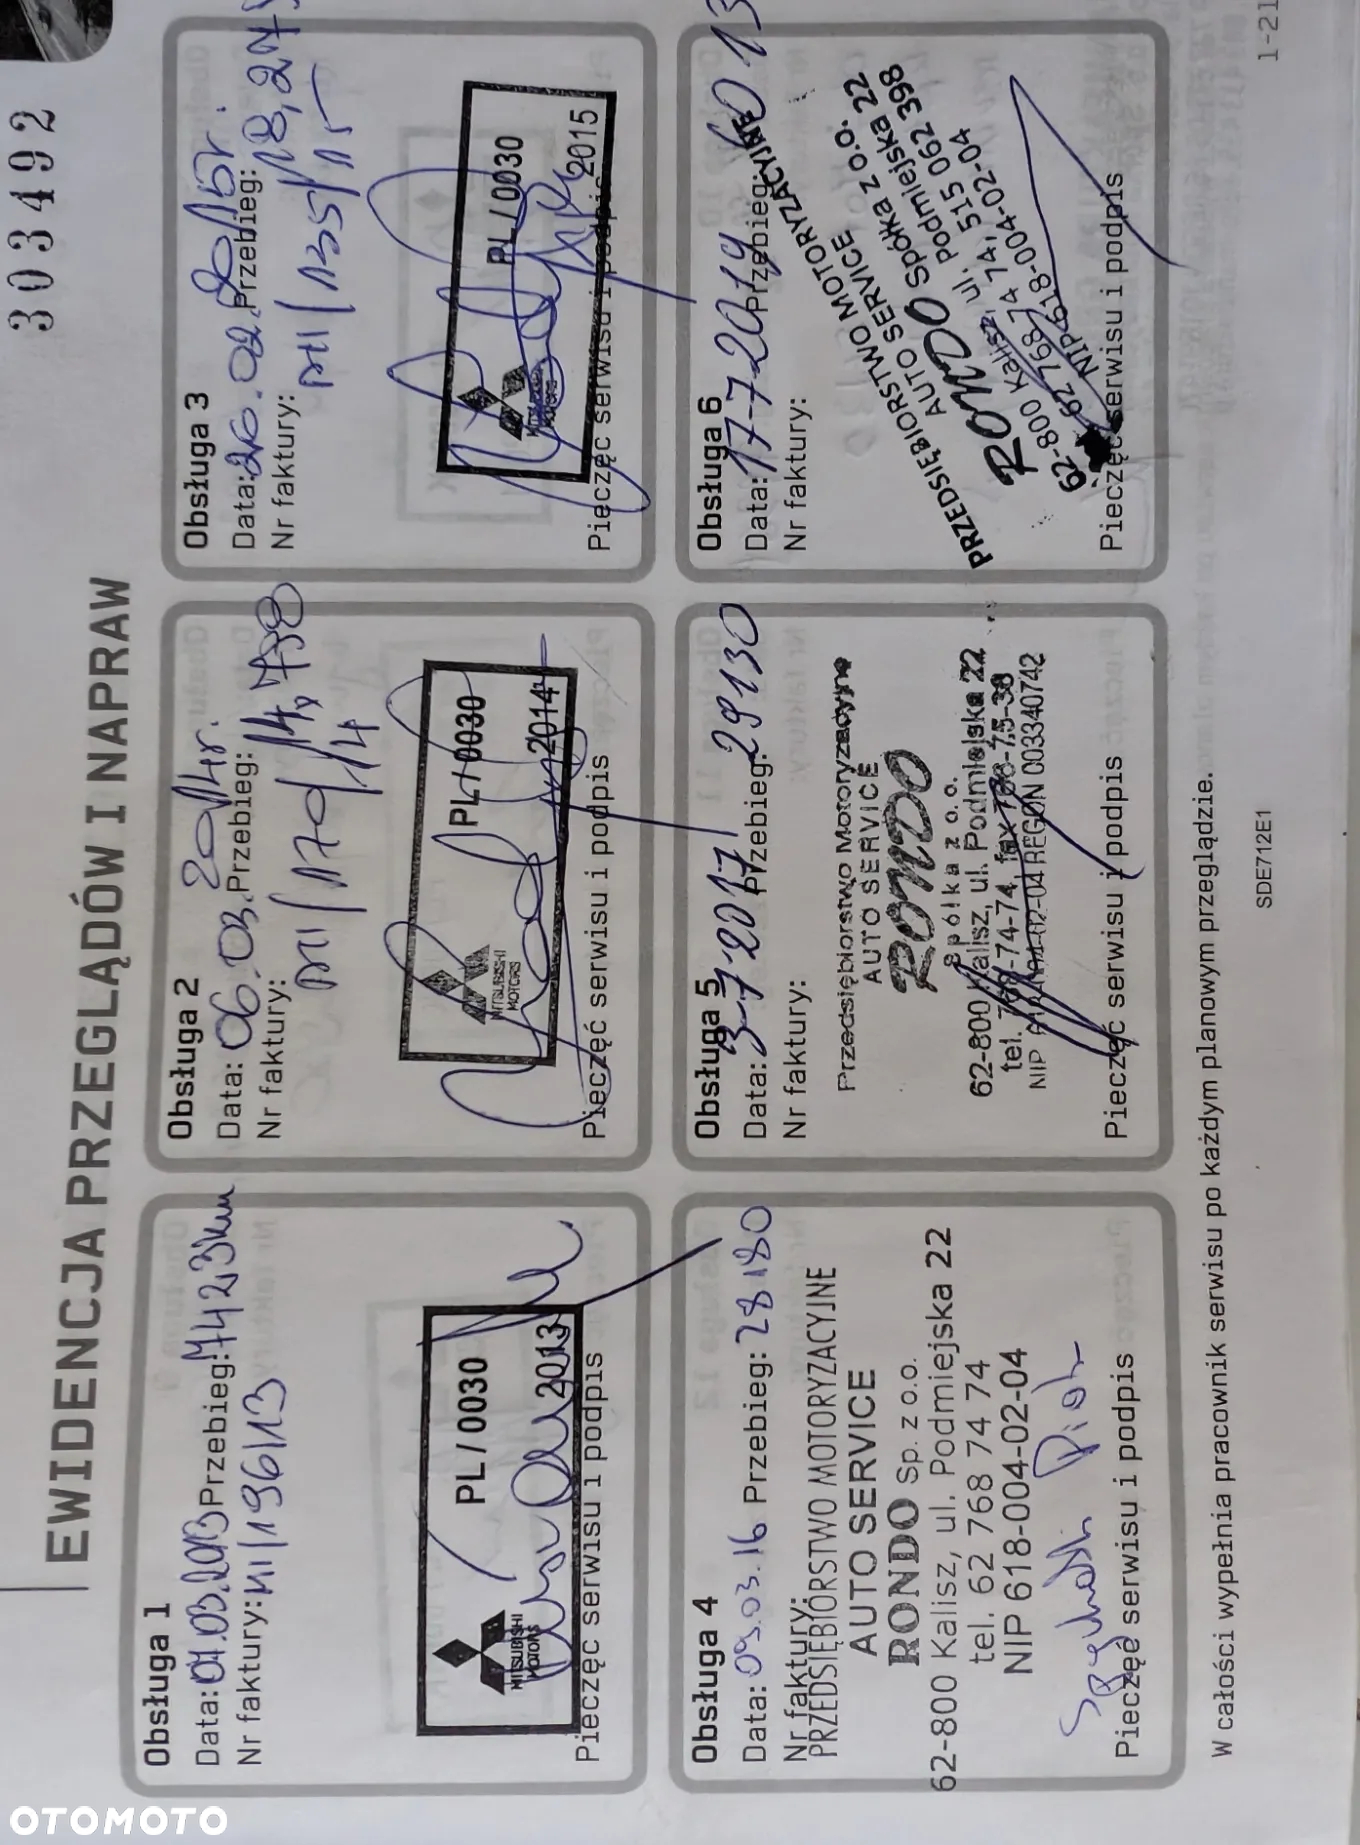 303492
EWIDENCJA PRZEGLĄDÓW I NAPRAW
Obsługa 1
Data: 01.03.2013 Przebieg: 7423km
Nr faktury: MI/196/13
MITSUBISHI
MOTORS
PL/0030
2013
Pieczęć serwisu i podpis
Obsługa 2
Data: 06.03.2014r. Przebieg: 14,738
Nr faktury:
MI/170/14
MITSUBISHI
MOTORS
PL/0030
2014
Pieczęć serwisu i podpis
Obsługa 3
Data: 26.02.2015r. Przebieg:
Nr faktury:
MI/135/15
PL/0030
2015
Pieczęć serwisu i podpis
Obsługa 4
Data: 09.03.16 Przebieg: 28180
Nr faktury:
PRZEDSIĘBIORSTWO MOTORYZACYJNE
AUTO SERVICE
RONDO Sp. z o.o.
62-800 Kalisz, ul. Podmiejska 22
tel. 62 768 74 74
NIP 618-004-02-04
Pieczęć serwisu i podpis
Obsługa 5
Data: 3-7-2017 Przebieg: 29130
Nr faktury:
Przedsiębiorstwo Motoryzacyjne
AUTO SERVICE
RONDO
Spółka z o.o.
62-800 Kalisz, ul. Podmiejska 22
tel. 768-74-74, fax 768-75-38
NIP REGON 003340742
Pieczęć serwisu i podpis
Obsługa 6
Data: 17-7-2019 Przebieg:
Nr faktury:
PRZEDSIĘBIORSTWO MOTORYZACYJNE
AUTO SERVICE
RONDO Spółka z o.o.
62-800 Kalisz, ul. Podmiejska 22
62 768 74 74, 515 062 398
NIP 618-004-02-04
Pieczęć serwisu i podpis
W całości wypełnia pracownik serwisu po każdym planowym przeglądzie.
SDE712E1
1-21
OTOMOTO